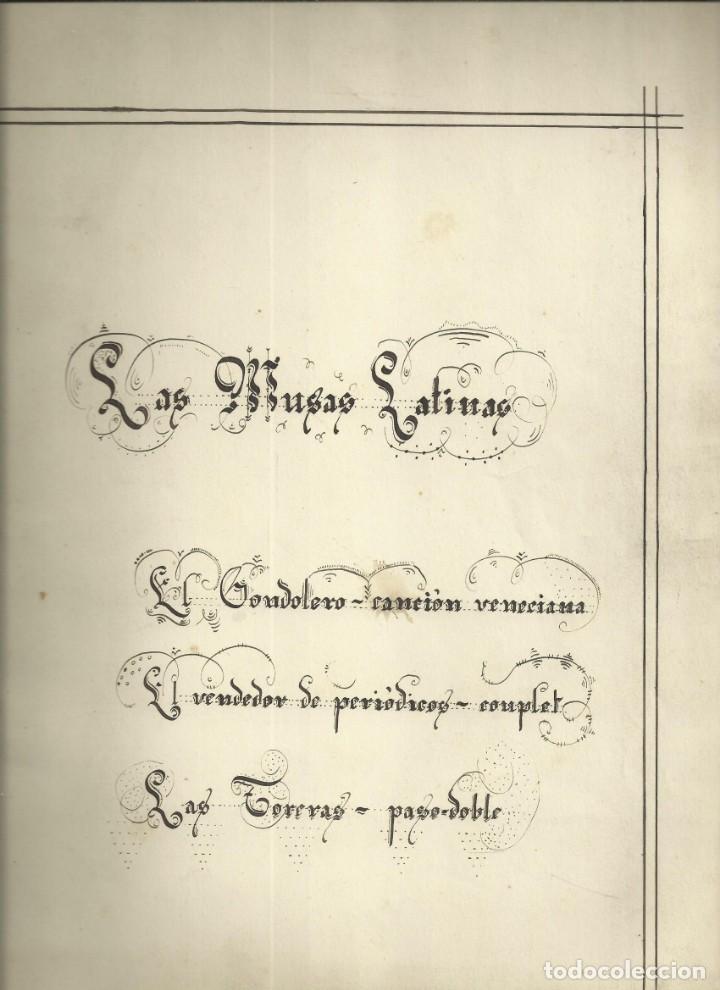 Las Musas Latinas
El Gondolero - canción veneciana
El vendedor de periódicos - couplet
Las Toreras - paso-doble
todocoleccion